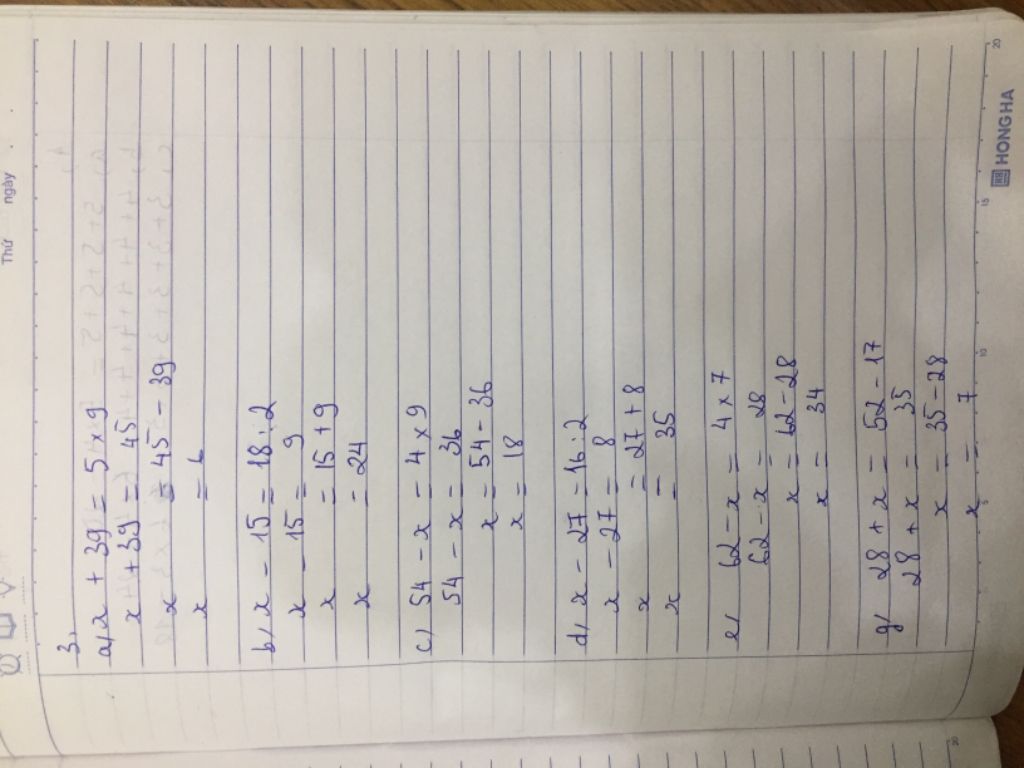 Thứ ngày
3,
a, x + 39 = 5 x 9
x + 39 = 45
x = 45 - 39
x = 6
b, x - 15 = 18 : 2
x - 15 = 9
x = 15 + 9
x = 24
c, 54 - x = 4 x 9
54 - x = 36
x = 54 - 36
x = 18
d, x - 27 = 16 : 2
x - 27 = 8
x = 27 + 8
x = 35
e, 62 - x = 4 x 7
62 - x = 28
x = 62 - 28
x = 34
g, 28 + x = 52 - 17
28 + x = 35
x = 35 - 28
x = 7
5 10 15 20
HONG HA
20